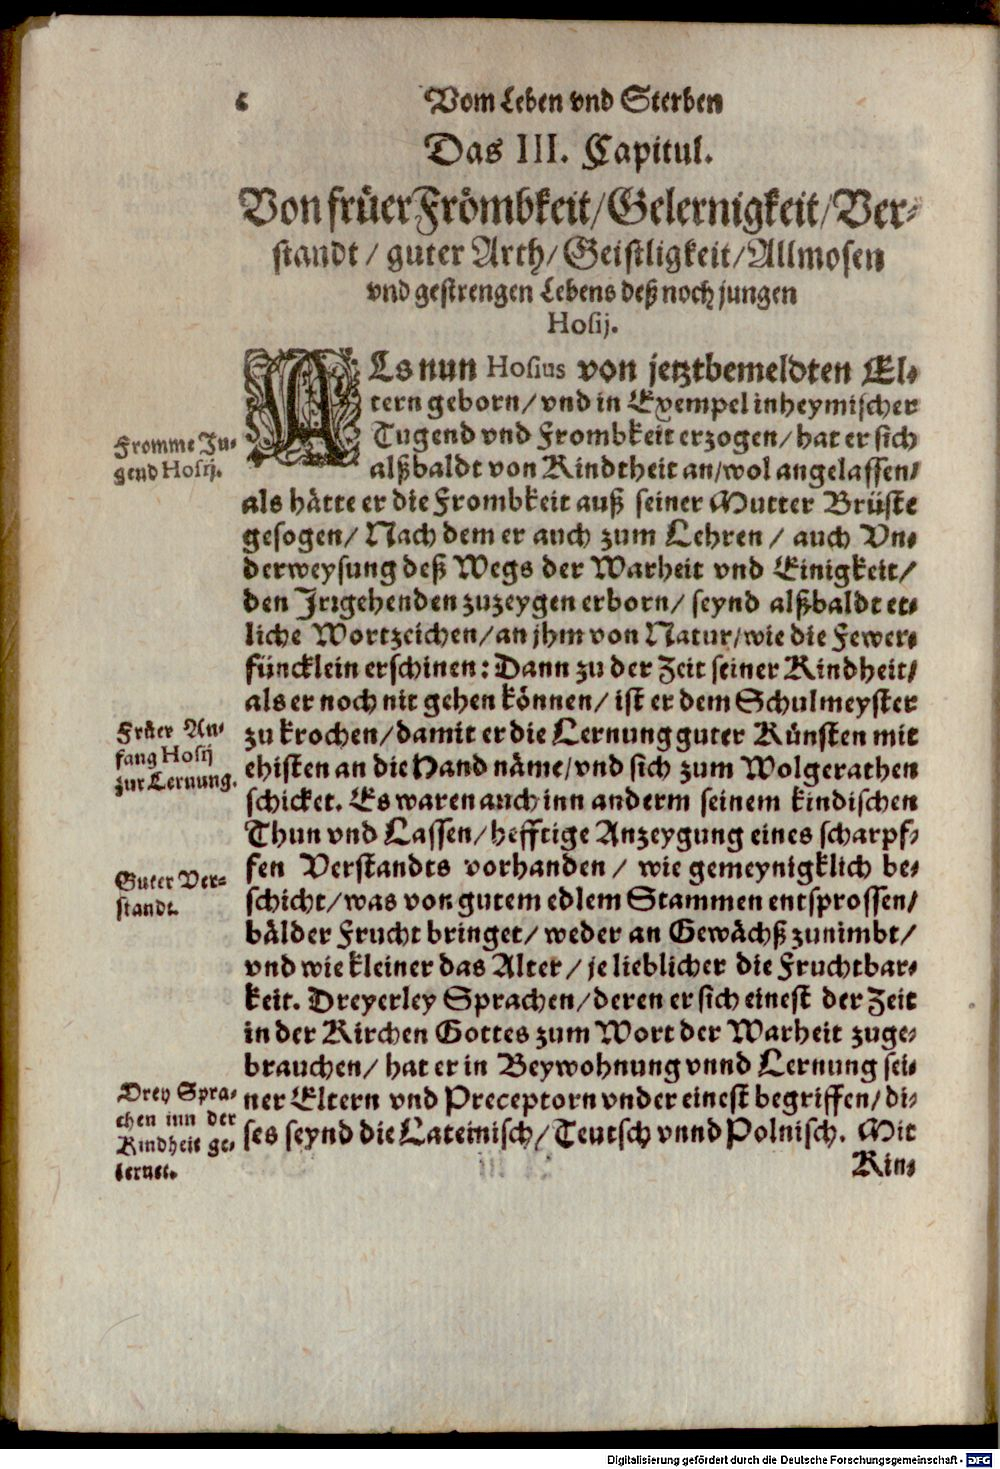 6
Vom Leben vnd Sterben
Das III. Capitul.
Von früer Frömbkeit/ Gelernigkeit/ Ver-
standt/ guter Arth/ Geistligkeit/ Allmosen
vnd gestrengen Lebens deß noch jungen
Hosij.
ALs nun Hosius von jetztbemeldten El-
tern geborn/ vnd in Exempel inheymischer
Tugend vnd Frombkeit erzogen/ hat er sich
alßbaldt von Kindtheit an/ wol angelassen/
als hätte er die Frombkeit auß seiner Mutter Brüste
gesogen/ Nach dem er auch zum Lehren/ auch Vn-
derweysung deß Wegs der Warheit vnd Einigkeit/
den Jrrgehenden zuzeygen erborn/ seynd alßbaldt et-
liche Wortzeichen/ an jhm von Natur/ wie die Fewer-
füncklein erschinen: Dann zu der Zeit seiner Kindheit/
als er noch nit gehen können/ ist er dem Schulmeyster
zu krochen/ damit er die Lernung guter Künsten mit
ehisten an die Hand näme/ vnd sich zum Wolgerathen
schicket. Es waren auch inn anderm seinem kindischen
Thun vnd Lassen/ hefftige Anzeygung eines scharpf-
fen Verstandts vorhanden/ wie gemeynigklich be-
schicht/ was von gutem edlem Stammen entsprossen/
bälder Frucht bringet/ weder an Gewächß zunimbt/
vnd wie kleiner das Alter/ je lieblicher die Fruchtbar-
keit. Dreyerley Sprachen/ deren er sich einest der Zeit
in der Kirchen Gottes zum Wort der Warheit zuge-
brauchen/ hat er in Beywohnung vnnd Lernung sei-
ner Eltern vnd Preceptorn vnder einest begriffen/ di-
ses seynd die Lateinisch/ Teutsch vnnd Polnisch. Mit
Kin-
Fromme Ju-
gend Hosij.
Früer An-
fang Hosij
zur Lernung.
Guter Ver-
standt.
Drey Spra-
chen inn der
Kindheit ge-
lernet.
Digitalisierung gefördert durch die Deutsche Forschungsgemeinschaft - DFG